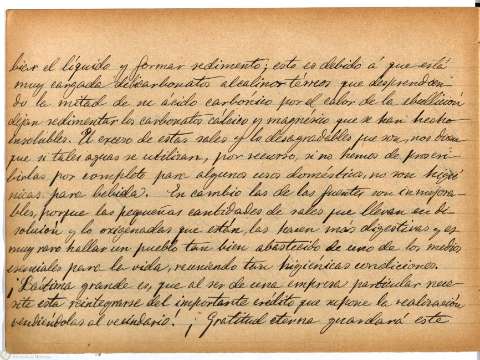 biar el líquido y formar sedimento; esto es debido á que está
muy cargada de bicarbonatos alcalinos térreos que desprendien
do la mitad de su ácido carbónico por el calor de la ebullición
dejan sedimentar los carbonatos cálcico y magnésico que se han hecho
insolubles. El exceso de estas sales y lo desagradables que son, nos dicen
que si tales aguas se utilizan, por recurso, si no hemos de proscri
birlas por completo para algunos usos domésticos, no son higié
nicas para bebida. En cambio las de las fuentes son inmejora-
bles, porque las pequeñas cantidades de sales que llevan en di-
solución y lo oxigenadas que están, las hacen más digestivas y es
muy raro hallar un pueblo tan bien abastecido de uno de los medios
esenciales para la vida, reuniendo tan higiénicas condiciones.
¡Lástima grande es, que al ser de una empresa particular nece-
site esta reintegrarse del importante crédito que supone la realización
vendiéndolas al vecindario! ¡Gratitud eterna guardará este